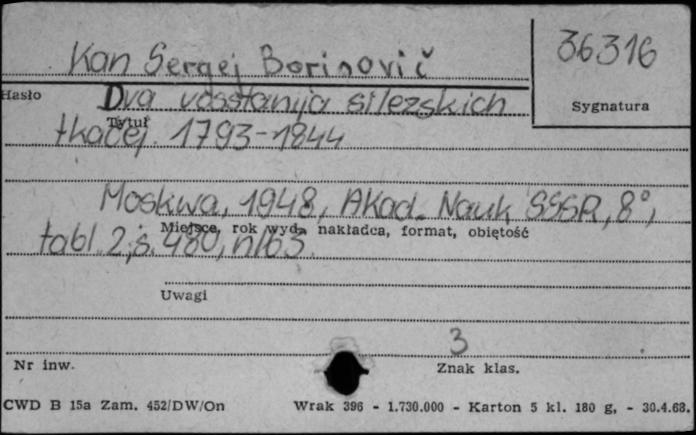 Kan Sergej Borisovič
36316
Hasło
Sygnatura
Dva vosstanija silezskich
Tytuł
tkačej. 1793-1844
Moskwa, 1948, Akad. Nauk SSSR, 8°,
Miejsce, rok wyd. nakładca, format, objętość
tabl. 2, s. 480, nlb3.
Uwagi
3
Nr inw.
Znak klas.
CWD B 15a Zam. 452/DW/On
Wrak 396 - 1.730.000 - Karton 5 kl. 180 g, - 30.4.68.